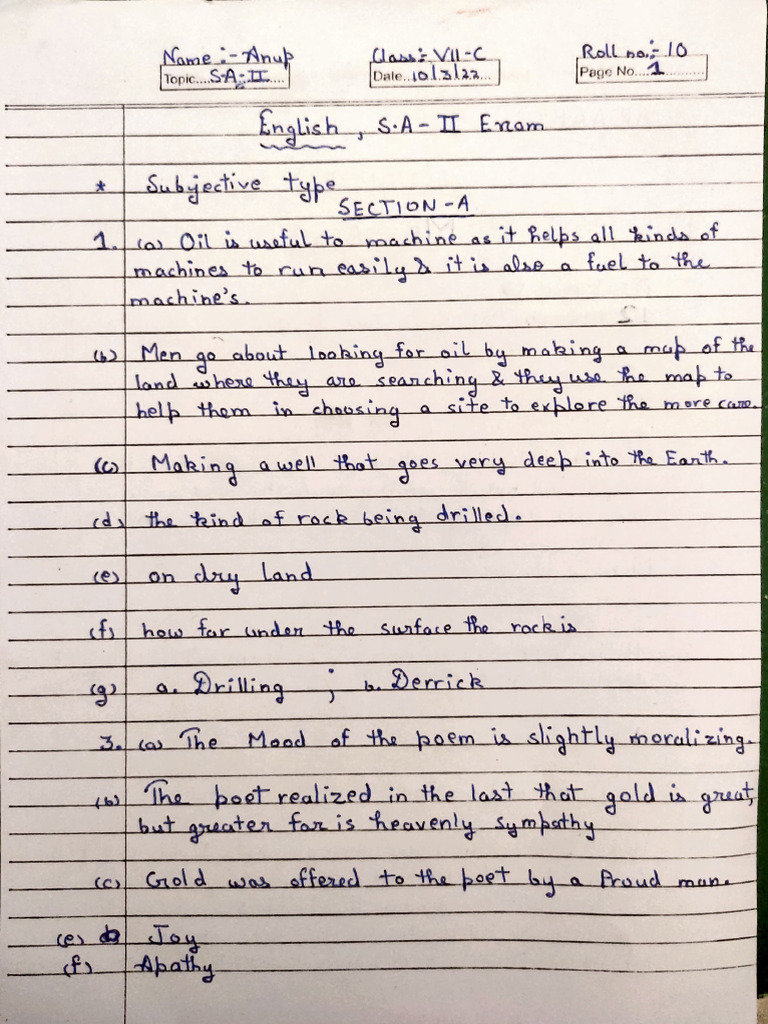 Name :- Anup Class:- VII-C Roll no.:- 10
Topic....S-A-II.... Date...10/3/22... Page No....1..........
English, S.A-II Exam
* Subjective type
SECTION-A
1. (a) Oil is useful to machine as it helps all kinds of
machines to run easily & it is also a fuel to the
machine's.
(b) Men go about looking for oil by making a map of the
land where they are searching & they use the map to
help them in choosing a site to explore the more care.
(c) Making a well that goes very deep into the Earth.
(d) the kind of rock being drilled.
(e) on dry land
(f) how far under the surface the rock is
(g) a. Drilling ; b. Derrick
3. (a) The Mood of the poem is slightly moralizing.
(b) The poet realized in the last that gold is great,
but greater far is heavenly sympathy
(c) Gold was offered to the poet by a Proud man.
(e) Joy
(f) Apathy